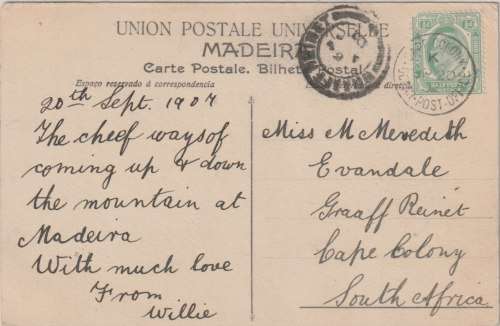 UNION POSTALE UNIVERSELLE
MADEIRA
Carte Postale. Bilhete Postal
Espaço reservado á correspondencia
20th Sept. 1907
The cheef ways of
coming up & down
the mountain at
Madeira
With much love
From
Willie
Miss M Meredith
Evandale
Graaff Reinet
Cape Colony
South Africa